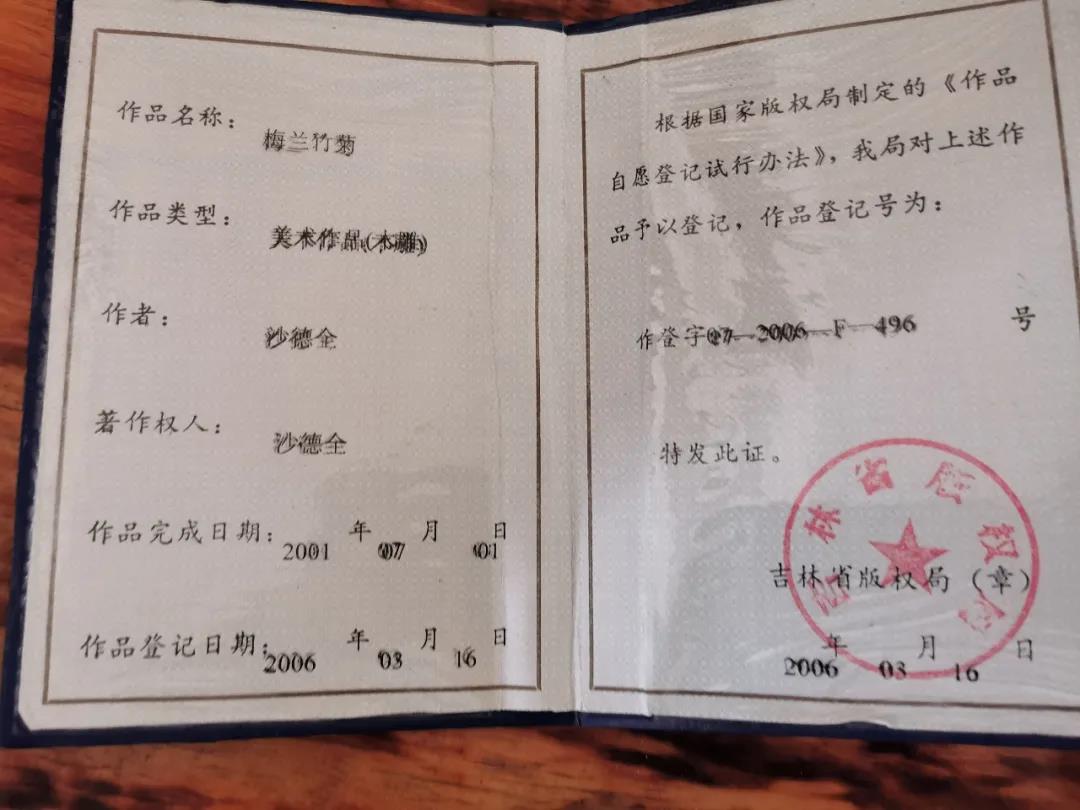 作品名称：
梅兰竹菊
作品类型：
美术作品(木雕)
作者：
沙德全
著作权人：
沙德全
作品完成日期： 年 月 日
2001 07 01
作品登记日期： 年 月 日
2006 03 16
根据国家版权局制定的《作品
自愿登记试行办法》，我局对上述作
品予以登记，作品登记号为：
作登字07—2006—F—496 号
特发此证。
吉林省版权局
吉林省版权局（章）
年 月 日
2006 03 16